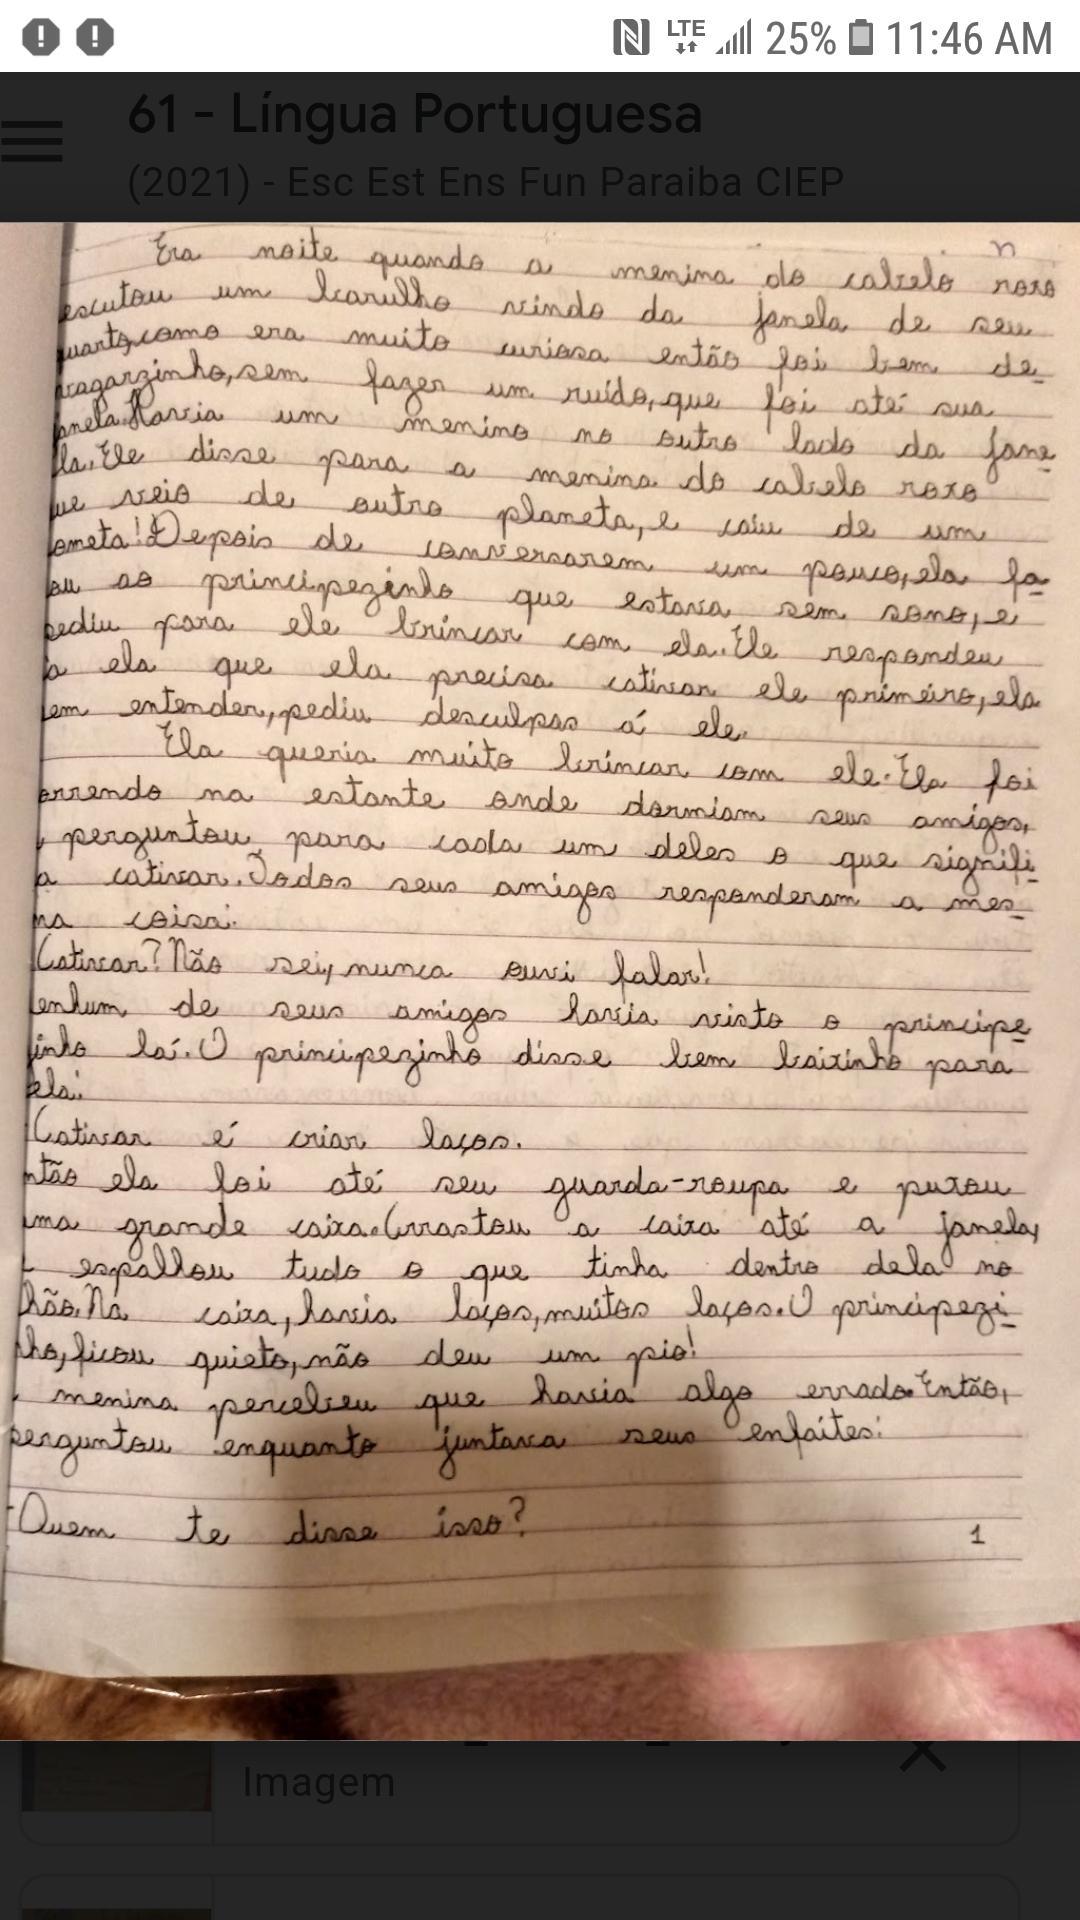 LTE 25% 11:46 AM
61 - Língua Portuguesa
(2021) - Esc Est Ens Fun Paraiba CIEP
n
Era noite quando a menina do cabelo roxo
escutou um barulho vindo da janela de seu
uarto,como era muito curiosa então foi bem de-
vagarzinho,sem fazer um ruído,que foi até sua
janela.Havia um menino no outro lado da jane-
la.Ele disse para a menina do cabelo roxo
ue veio de outro planeta,e caiu de um
ometa!Depois de conversarem um pouco,ela fa-
ou ao principezinho que estava sem sono,e
pediu para ele brincar com ela.Ele respondeu
a ela que ela precisa cativar ele primeiro,ela
em entender,pediu desculpas á ele.
Ela queria muito brincar com ele.Ela foi
orrendo na estante onde dormiam seus amigos,
perguntou para cada um deles o que signifi-
a cativar.Todos seus amigos responderam a mes-
ma coisa:
Cativar?Não sei,nunca ouvi falar!
enhum de seus amigos havia visto o principe-
zinho lá.O principezinho disse bem baixinho para
ela:
Cativar é criar laços.
ntão ela foi até seu guarda-roupa e puxou
uma grande caixa.Arrastou a caixa até a janela,
espalhou tudo o que tinha dentro dela no
chão.Na caixa,havia laços,muitos laços.O principezi-
nho,ficou quieto,não deu um pio!
menina percebeu que havia algo errado.Então,
perguntou enquanto juntava seus enfaites:
-Quem te disse isso?
1
Imagem